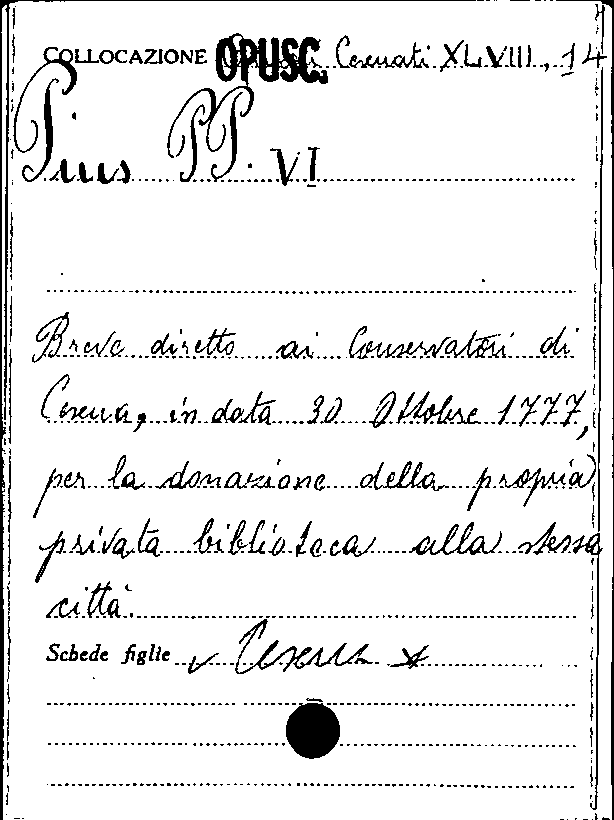 COLLOCAZIONE OPUSC. Cesenati XLVIII, 14
Pius PP. VI
Breve diretto ai Conservatori di
Cesena, in data 30 Ottobre 1777,
per la donazione della propria
privata biblioteca alla stessa
città.
Schede figlie Cesena